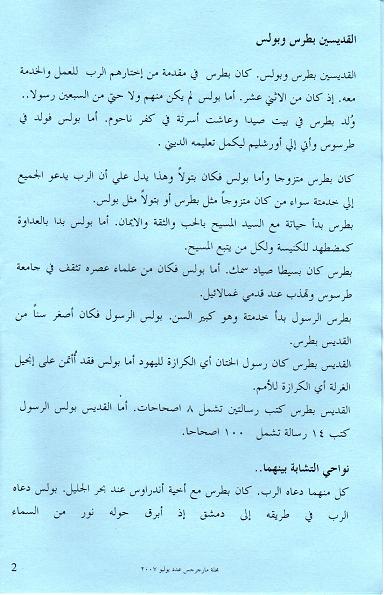 القديسين بطرس وبولس
القديسين بطرس وبولس. كان بطرس في مقدمة من إختارهم الرب للعمل والخدمة
معه. إذ كان من الاثني عشر. أما بولس لم يكن منهم ولا حتي من السبعين رسولا..
وُلد بطرس في بيت صيدا وعاشت أسرتة في كفر ناحوم. أما بولس فولد في
طرسوس وأتي إلي أورشليم ليكمل تعليمه الديني.
كان بطرس متزوجا وأما بولس فكان بتولاً وهذا يدل علي أن الرب يدعو الجميع
إلي خدمتة سواء من كان متزوجاً مثل بطرس أو بتولاً مثل بولس.
بطرس بدأ حياتة مع السيد المسيح بالحب والثقة والايمان. أما بولس بدا بالعداوة
كمضطهد للكنيسة ولكل من يتبع المسيح.
بطرس كان بسيطا صياد سمك. أما بولس فكان من علماء عصره تثقف في جامعة
طرسوس وتهذب عند قدمي غمالائيل.
بطرس الرسول بدأ خدمتة وهو كبير السن. بولس الرسول فكان أصغر سناً من
القديس بطرس.
القديس بطرس كان رسول الختان أي الكرازة لليهود أما بولس فقد أؤتمن على إنجيل
الغرلة أي الكرازة للأمم.
القديس بطرس كتب رسالتين تشمل ٨ اصحاحات. أما القديس بولس الرسول
كتب ١٤ رسالة تشمل ١٠٠ اصحاحا.
نواحي التشابة بينهما..
كل منهما دعاه الرب. كان بطرس مع أخية أندراوس عند بحر الجليل. بولس دعاه
الرب في طريقه إلى دمشق إذ أبرق حوله نور من السماء
مجلة مارجرجس عدد يوليو ٢٠٠٧
2